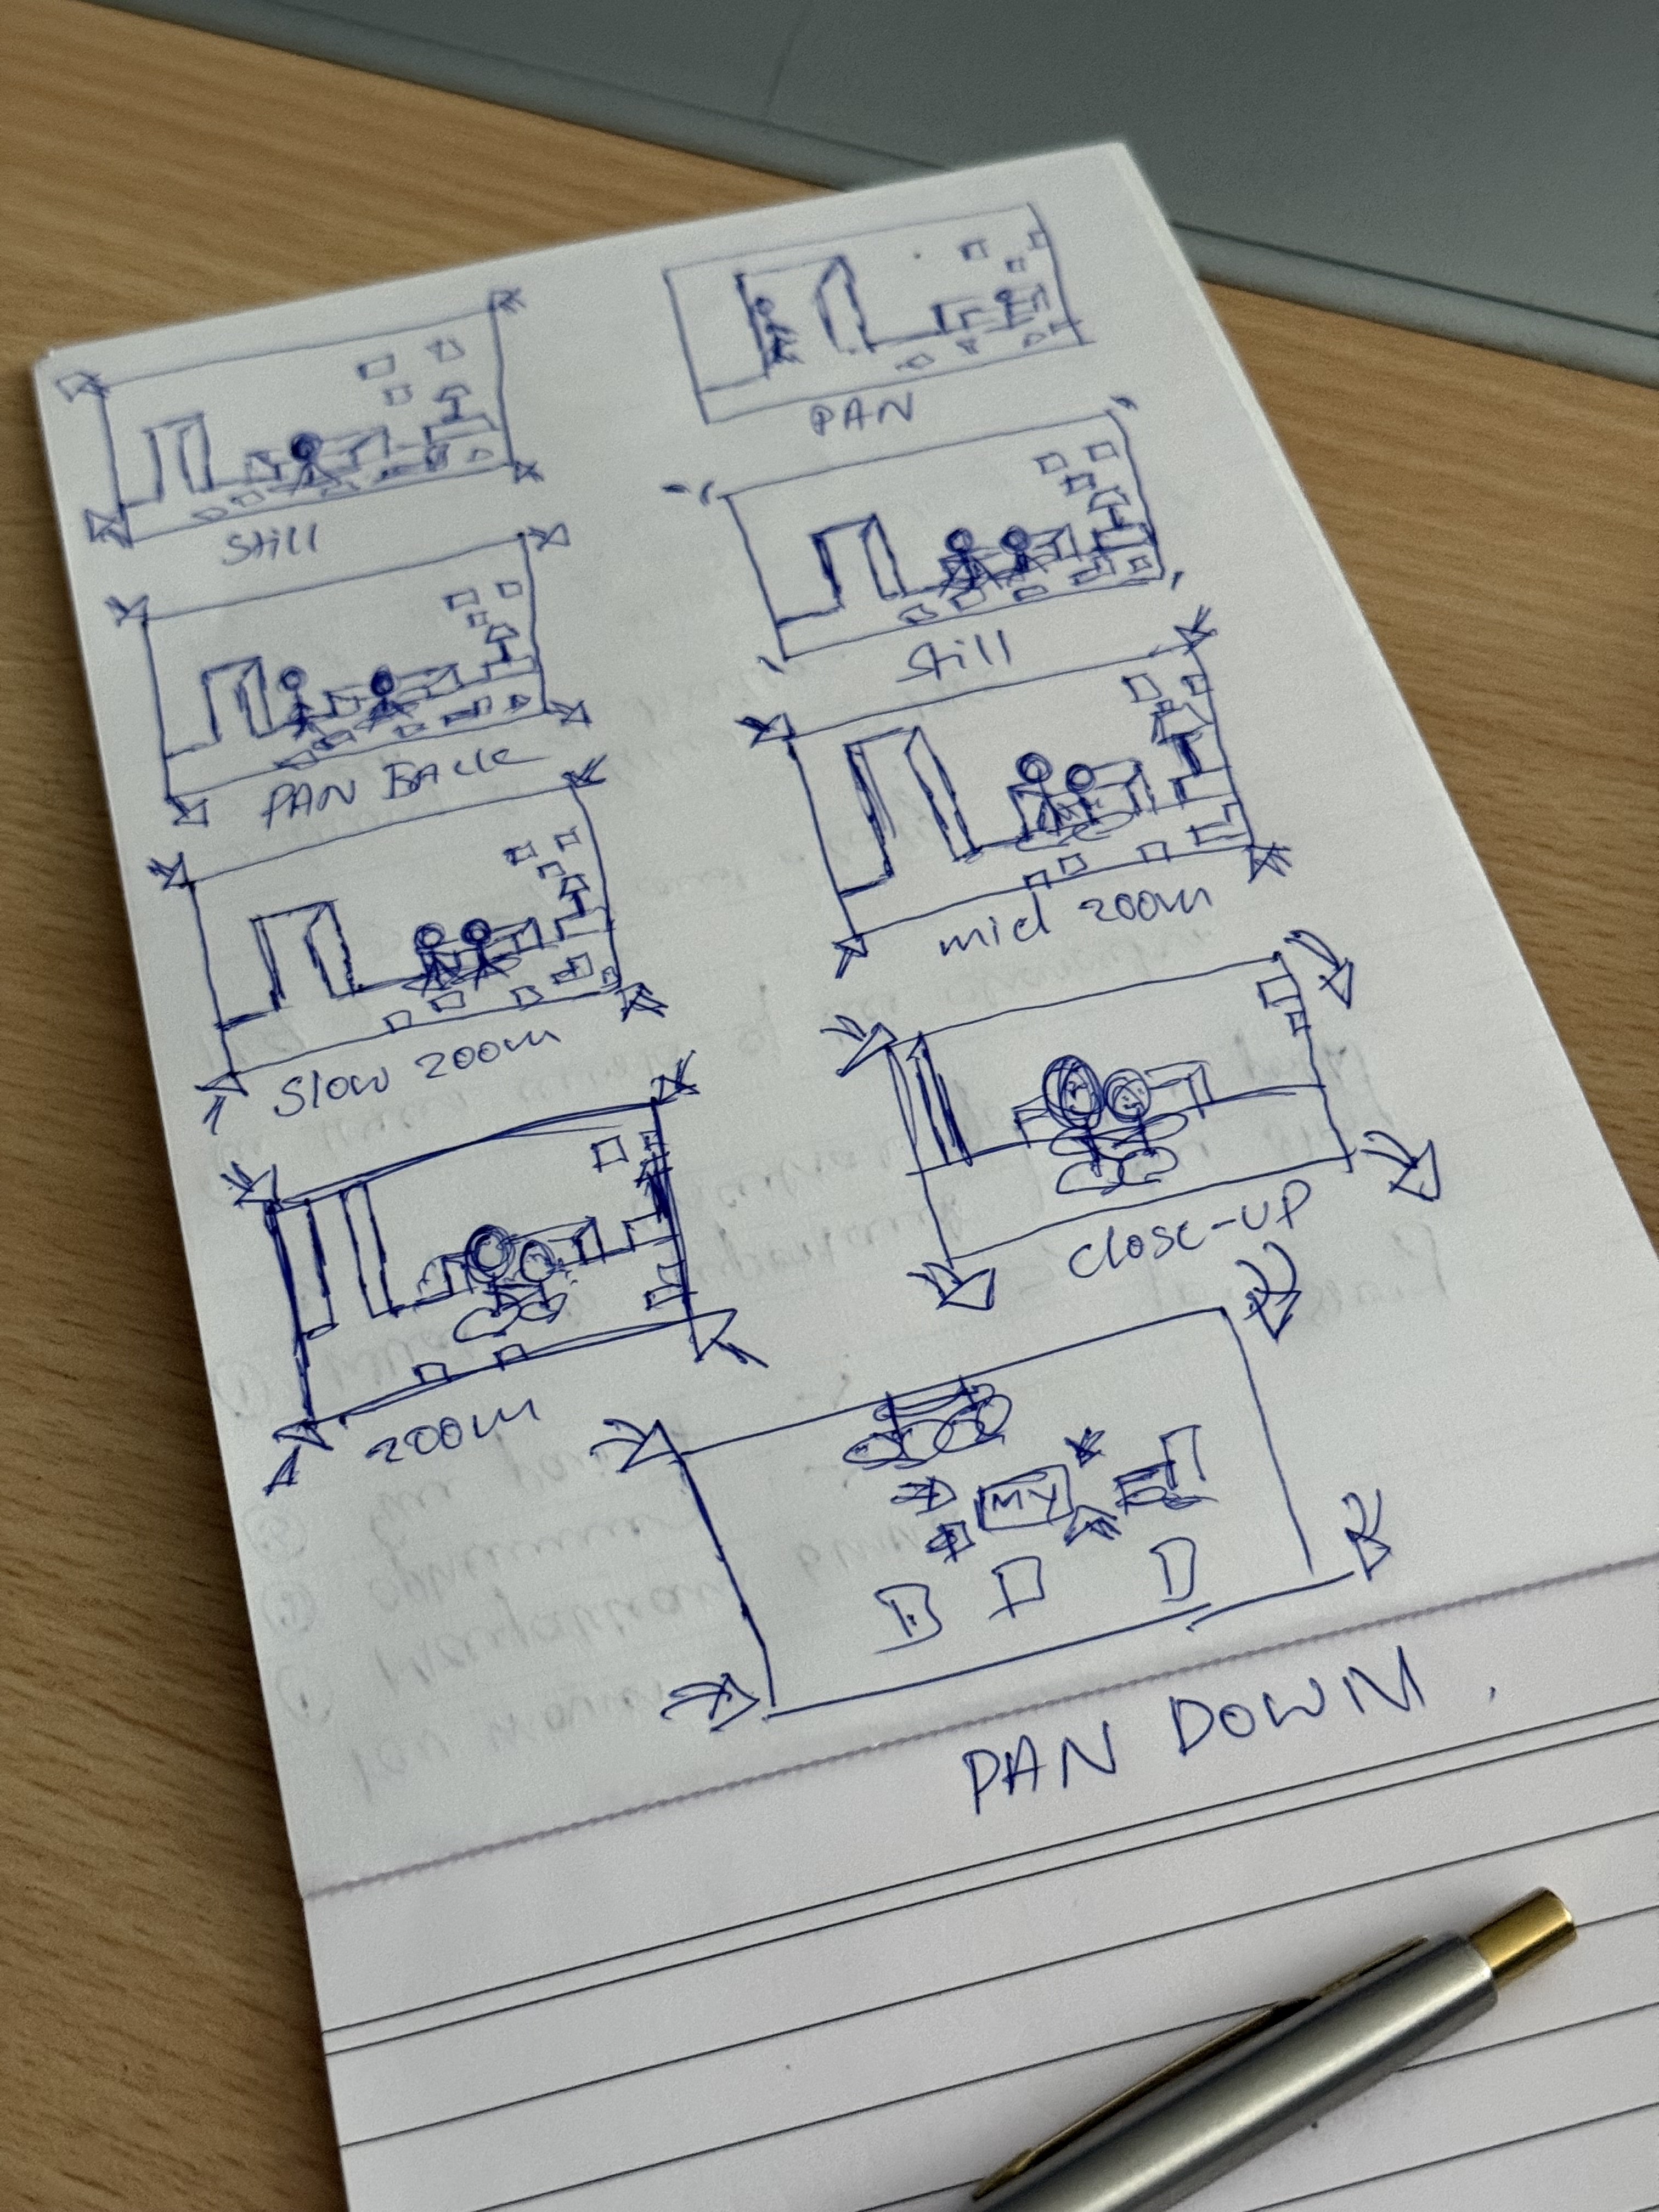 Still
PAN
PAN BACK
Still
Slow zoom
mid zoom
zoom
close-up
MY
PAN DOWN.